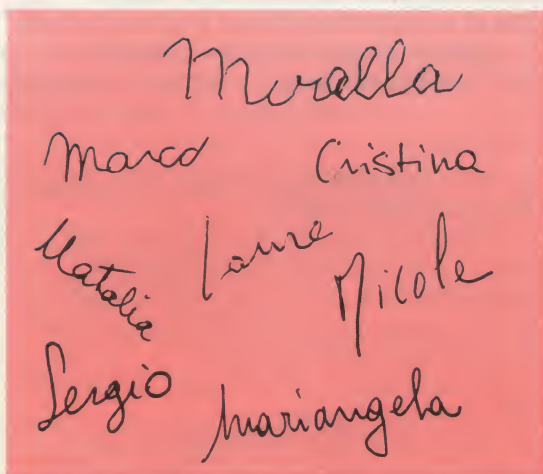 Mirella
Marco Cristina
Natalia Laura Nicole
Sergio Mariangela